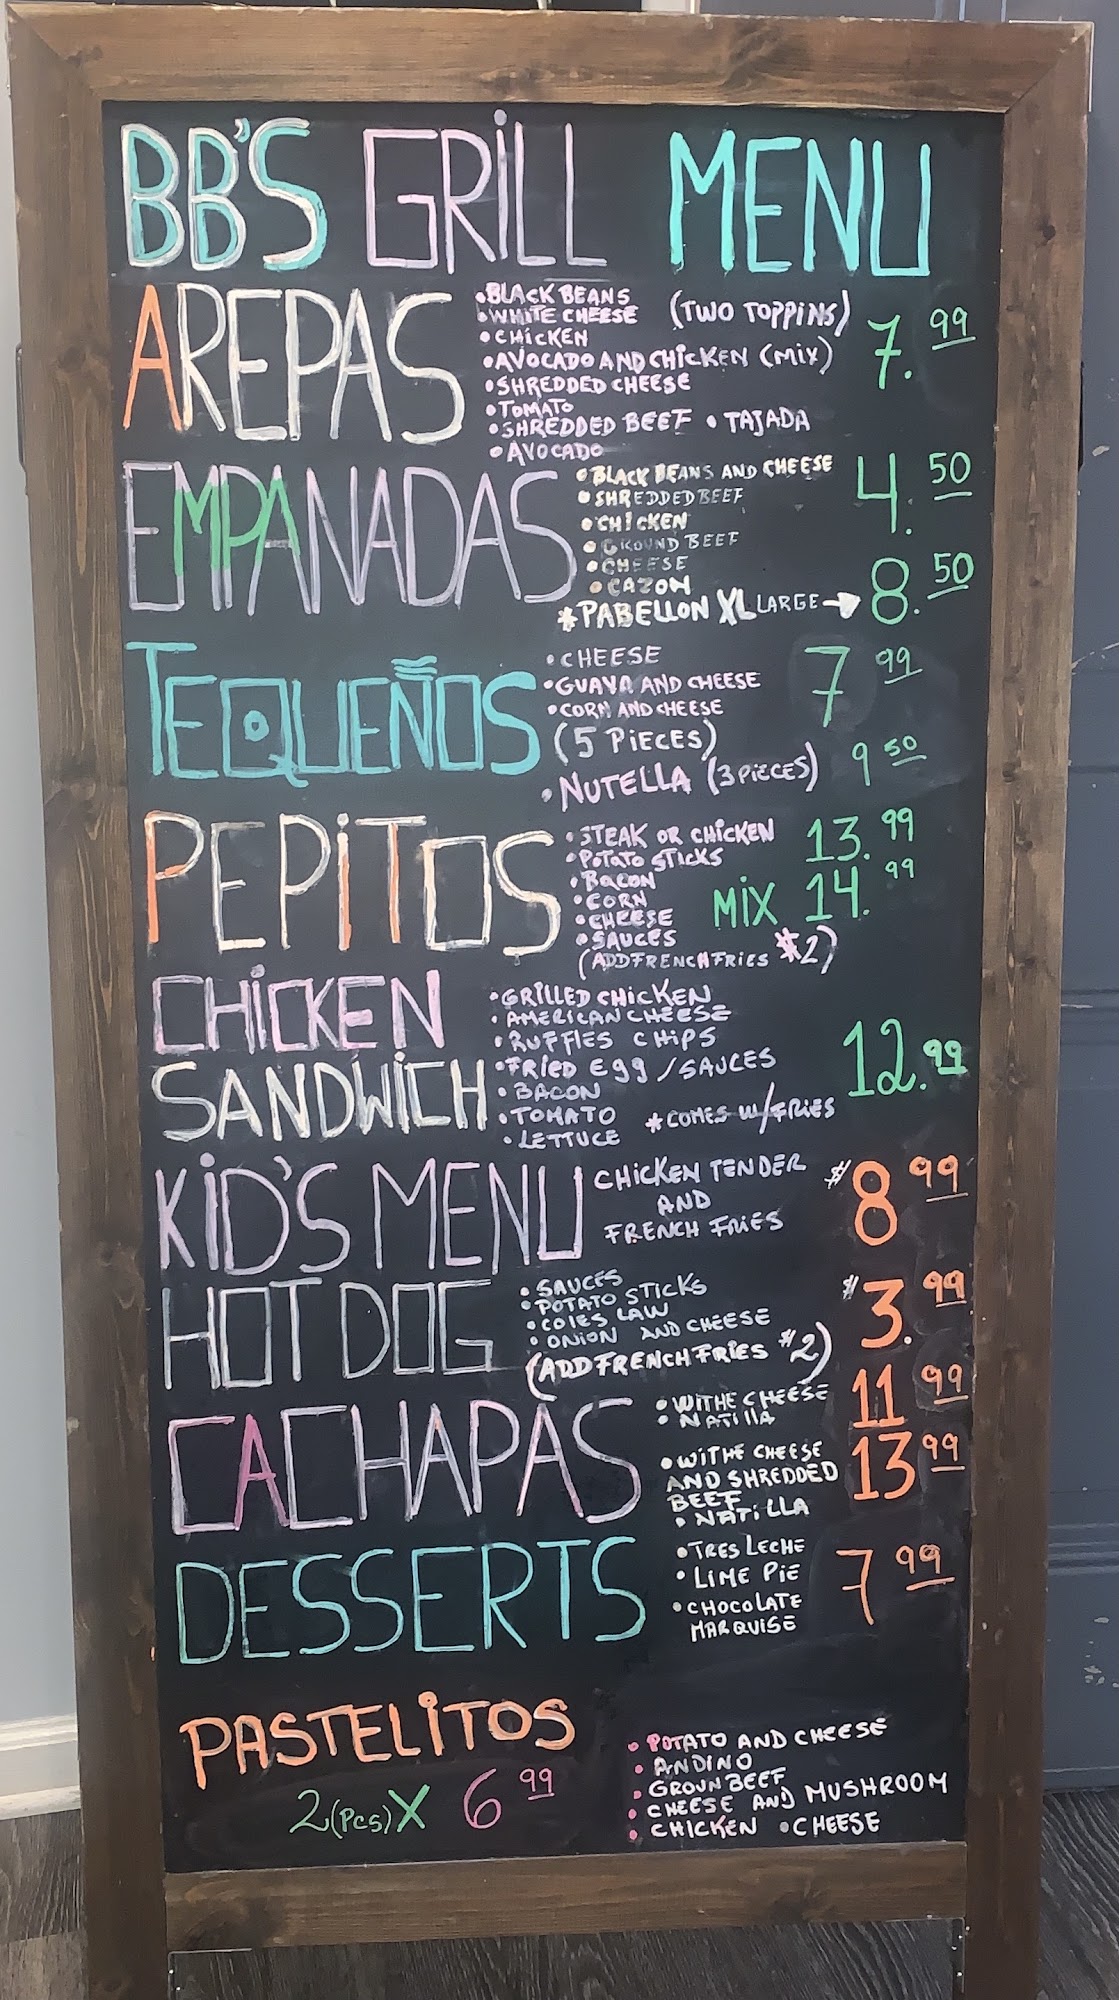 BB'S GRILL MENU
AREPAS
•BLACK BEANS (TWO TOPPINS) 7.99
•WHITE CHEESE
•CHICKEN
•AVOCADO AND CHICKEN (MIX)
•SHREDDED CHEESE
•TOMATO
•SHREDDED BEEF •TAJADA
•AVOCADO
EMPANADAS
•BLACK BEANS AND CHEESE 4.50
•SHREDDED BEEF
•CHICKEN
•GROUND BEEF
•CHEESE
•CAZON
*PABELLON XL LARGE→ 8.50
TEQUEÑOS
•CHEESE 7 99
•GUAVA AND CHEESE
•CORN AND CHEESE
(5 PIECES)
•NUTELLA (3 PIECES) 9 50
PEPITOS
•STEAK OR CHICKEN 13.99
•POTATO STICKS
•BACON MIX 14.99
•CORN
•CHEESE
•SAUCES
(ADD FRENCH FRIES $2)
CHICKEN
SANDWICH
•GRILLED CHICKEN
•AMERICAN CHEESE
•RUFFLES CHIPS 12.99
•FRIED EGG/SAUCES
•BACON
•TOMATO *COMES W/FRIES
•LETTUCE
KID'S MENU
CHICKEN TENDER $8 99
AND
FRENCH FRIES
HOT DOG
•SAUCES $3.99
•POTATO STICKS
•COLES LAW
•ONION AND CHEESE
(ADD FRENCH FRIES $2)
CACHAPAS
•WITHE CHEESE 11 99
•NATILLA
•WITHE CHEESE 13 99
AND SHREDDED
BEEF
•NATILLA
DESSERTS
•TRES LECHE 7 99
•LIME PIE
•CHOCOLATE
MARQUISE
PASTELITOS
2(PCS) X 6 99
•POTATO AND CHEESE
•ANDINO
•GROUN BEEF
•CHEESE AND MUSHROOM
•CHICKEN •CHEESE